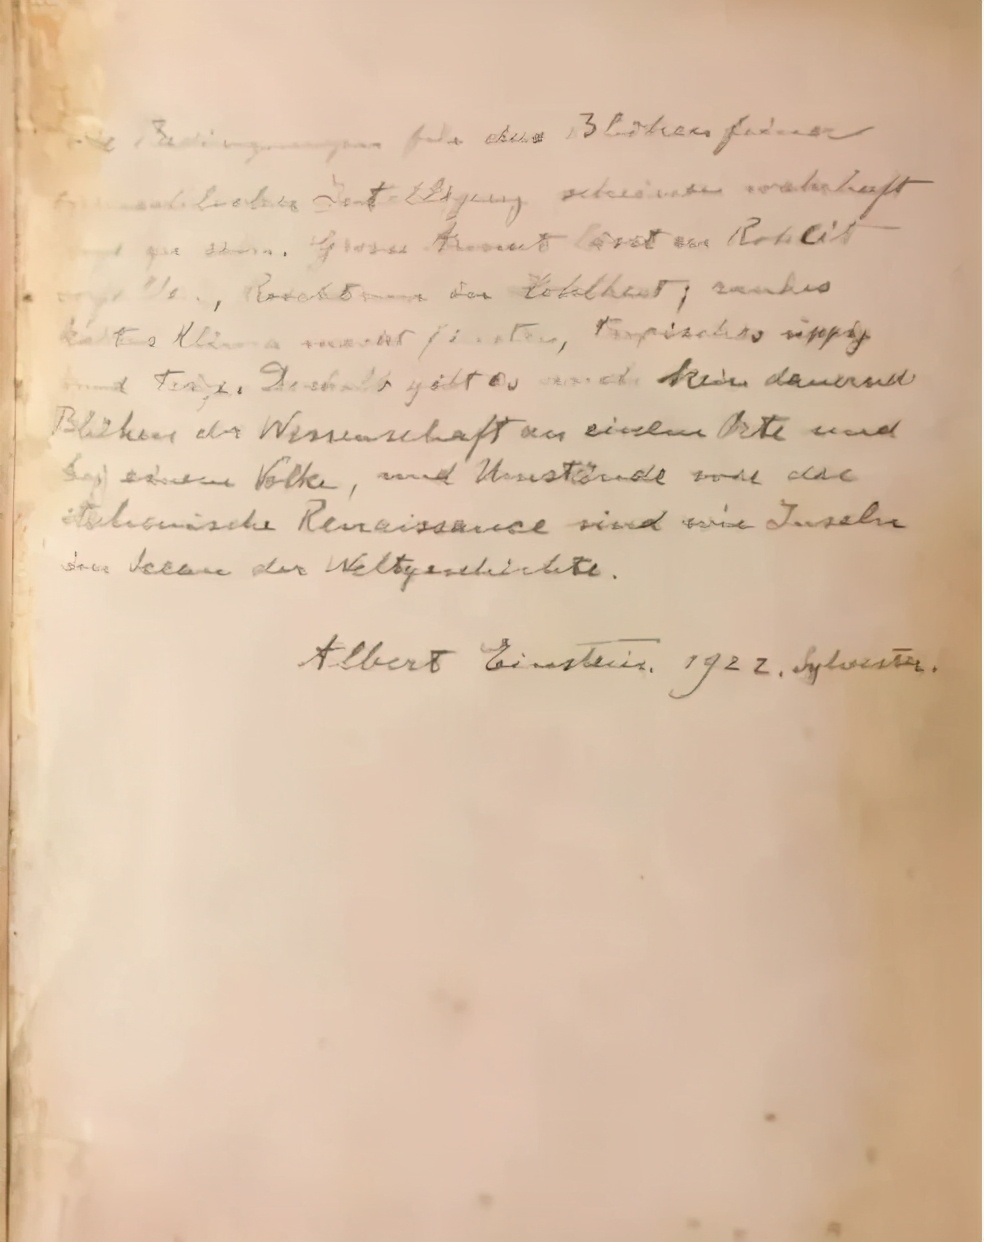 Bedingungen für das Blühen feiner
Intelligenz scheinen wahrhaft
zu sein. Grosse Armut lässt in Rohheit
, Reichtum in Hohlheit; rauhes
kaltes Klima macht finster, tropisches üppig
und träg. Deshalb gibt es auch kein dauernd
Blühen der Wissenschaft an einem Orte und
bei einem Volke, und Umstände wie die
italienische Renaissance sind wie Inseln
im Ocean der Weltgeschichte.
Albert Einstein. 1922. Sylvester.